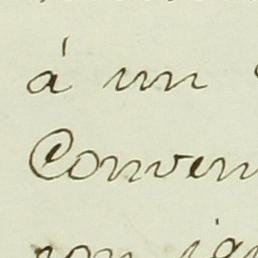 á un
Conven